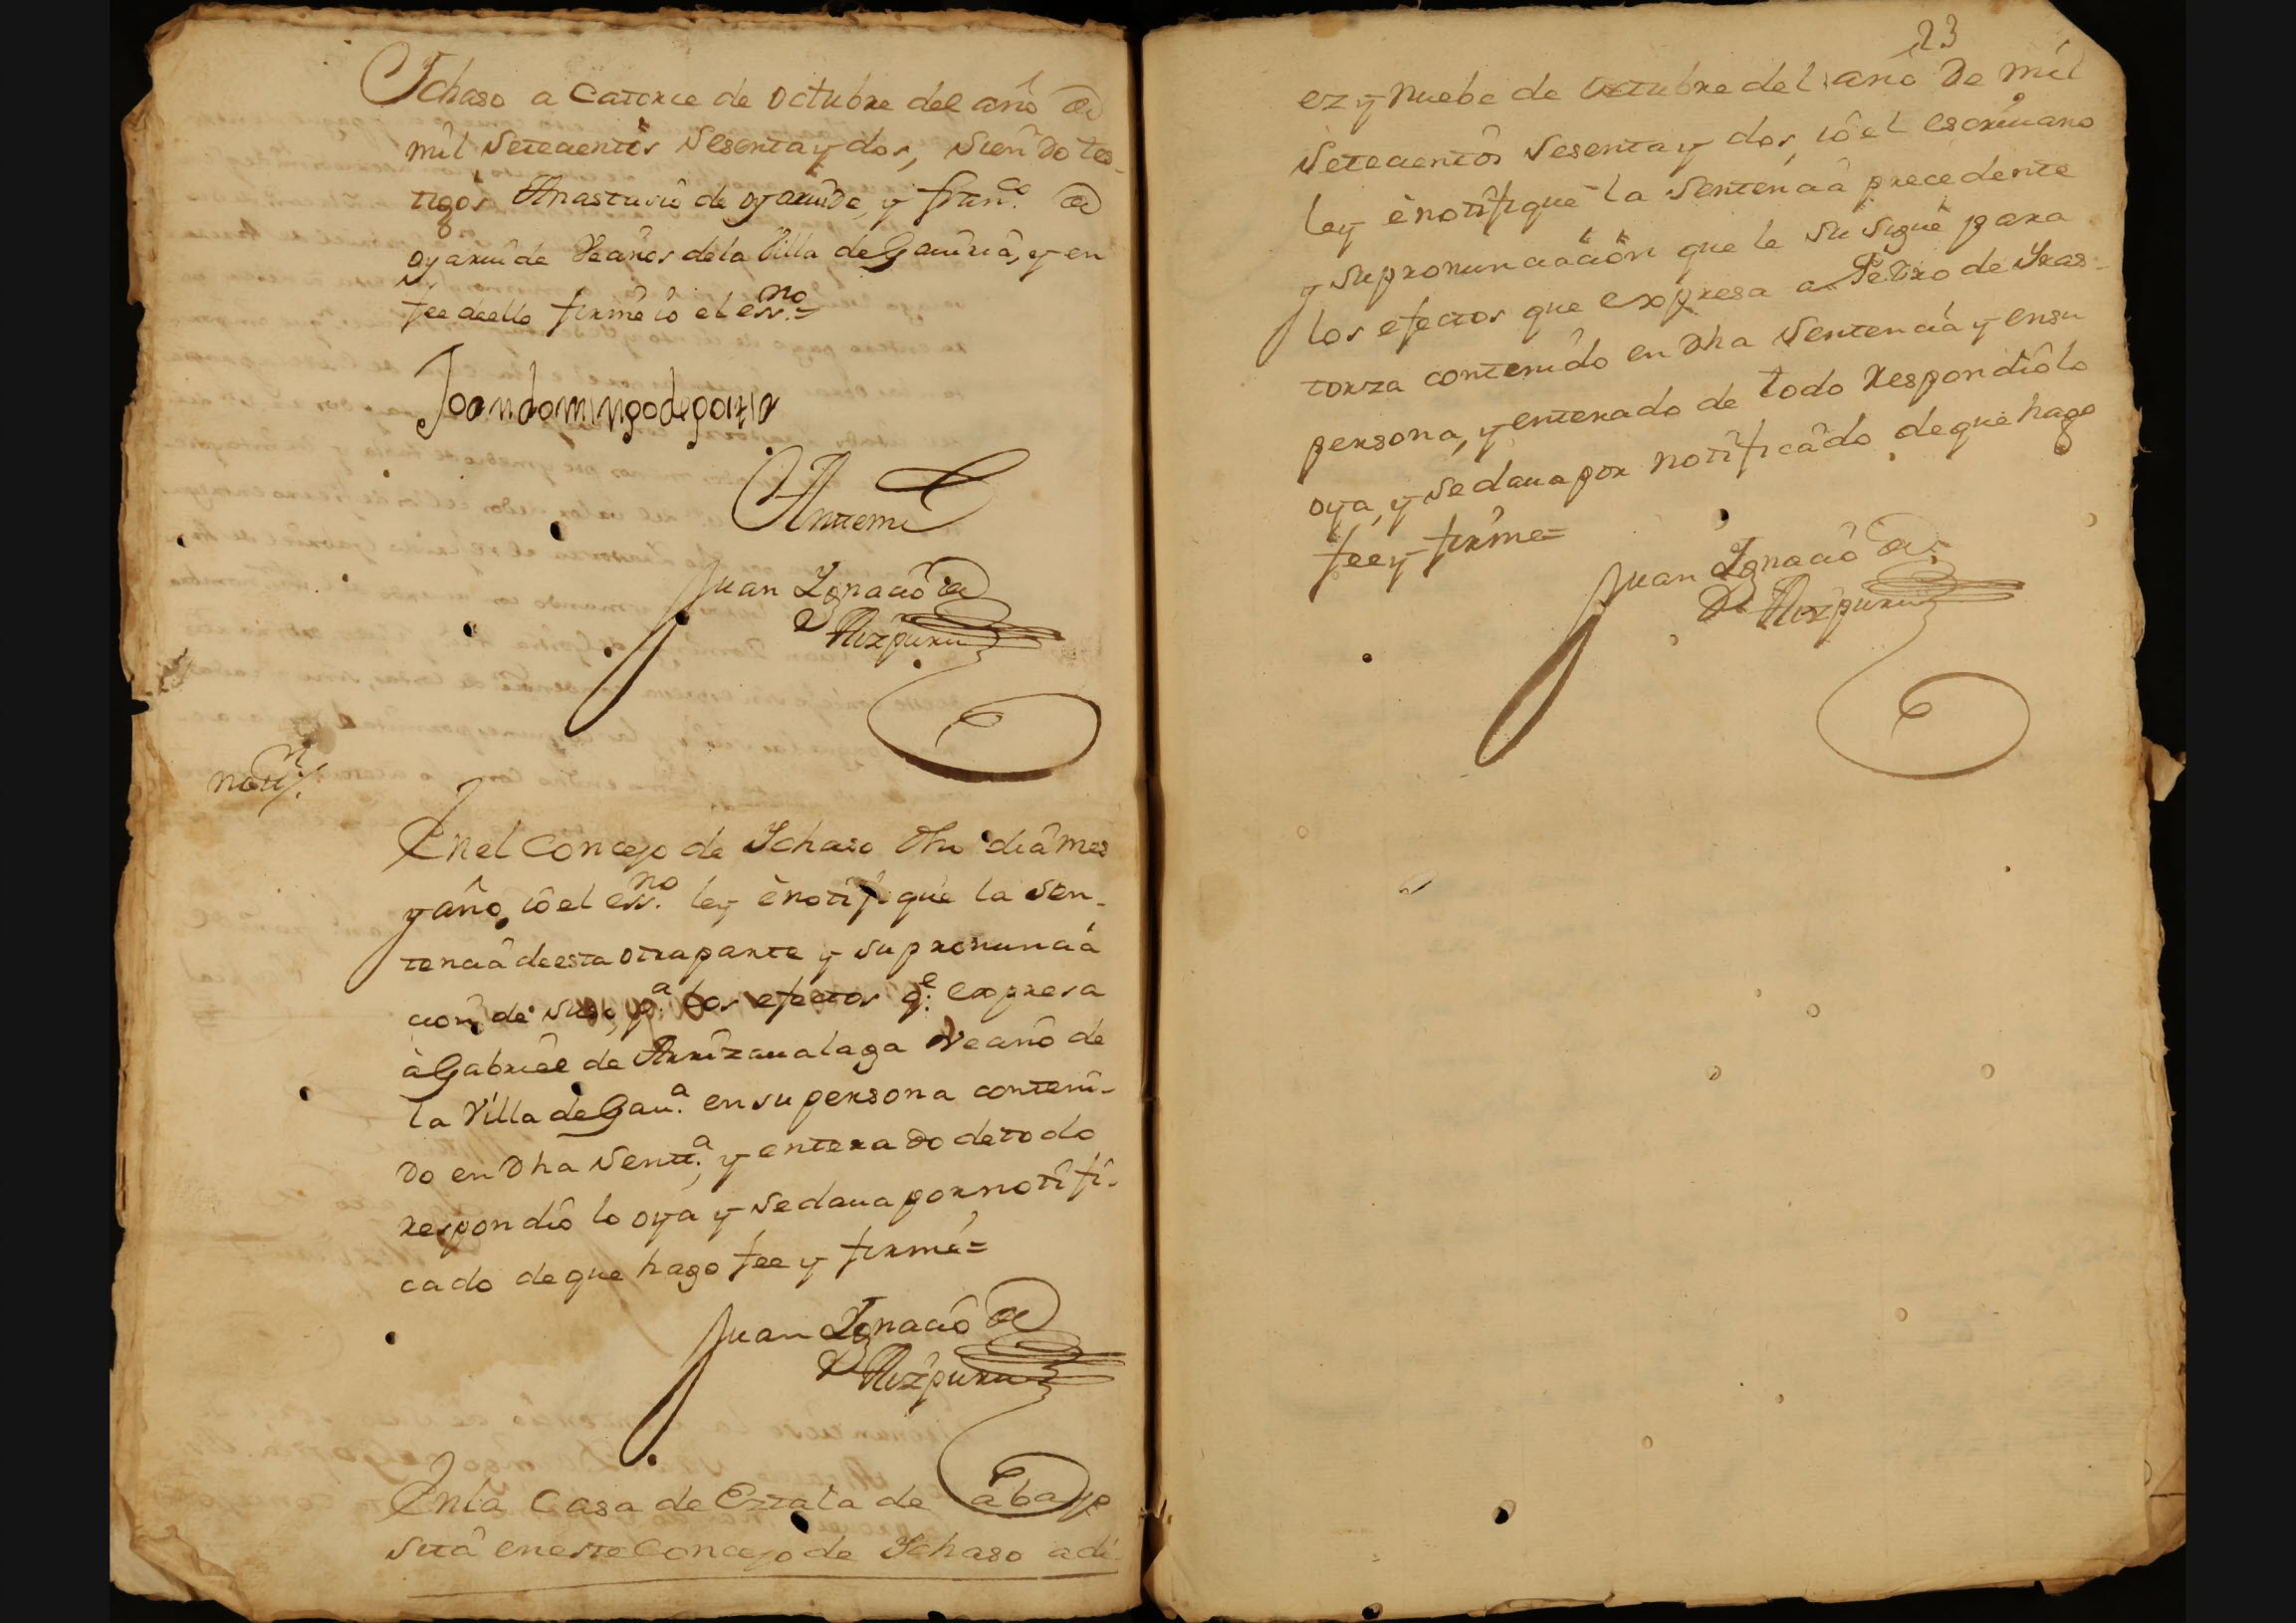 Ychaso a Catorce de Octubre del año de
mil Setecientos Sesenta y dos, Siendo tes-
tigos Anastasio de oyaruide, y fran.co de
oyaruide Vecinos dela Villa de Gauiria, y en
fee deello firmé io el ess.no =
Joan domingo de goitia
Antemi
Juan Ygnacio de
Aizpuru
notif.n
En el Concejo de Ychaso dho dia mes
y año, io el ess.no ley è notifiqué la Sen-
tencia deesta otra parte y su pronuncia
cion de suso, p.a los efectos q.e expresa
à Gabriel de Arrizaualaga Vecino de
la Villa de Gau.a en su persona conteni-
do en dha Sent.a, y enterado de todo
respondió lo oya y se daua por notifi-
cado de que hago fee y firmé =
Juan Ygnacio de
Aizpuru
En la Casa de Ezcala de abajo
sita en este Concejo de Ychaso a di-
23
ez y nuebe de Octubre del año de mil
Setecientos Sesenta y dos, io el escriuano
ley è notifiqué la Sentencia precedente
y su pronunciacion que le su sigue para
los efectos que expresa a Pedro de Yras-
torza contenido en dha Sentencia y en su
persona, y enterado de todo Respondió lo
oya, y se daua por notificado de que hago
fee y firme =
Juan Ygnacio de
Aizpuru